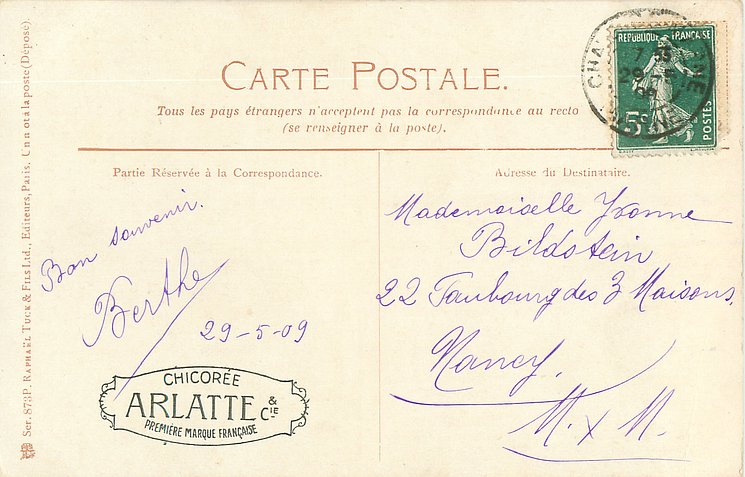 CARTE POSTALE.
Tous les pays étrangers n'acceptent pas la correspondance au recto
(se renseigner à la poste).
REPUBLIQUE FRANÇAISE
POSTES
Partie Réservée à la Correspondance.
Adresse du Destinataire.
Bon souvenir.
Berthe
29-5-09
CHICORÉE
ARLATTE & Cie
PREMIÈRE MARQUE FRANÇAISE
Mademoiselle Yvonne
Bildstein
22 Faubourg des 3 Maisons.
Nancy.
M. x M.
Ser. 873P. RAPHAËL TUCK & FILS Ltd., Editeurs, Paris. Un mot à la poste (Déposé).